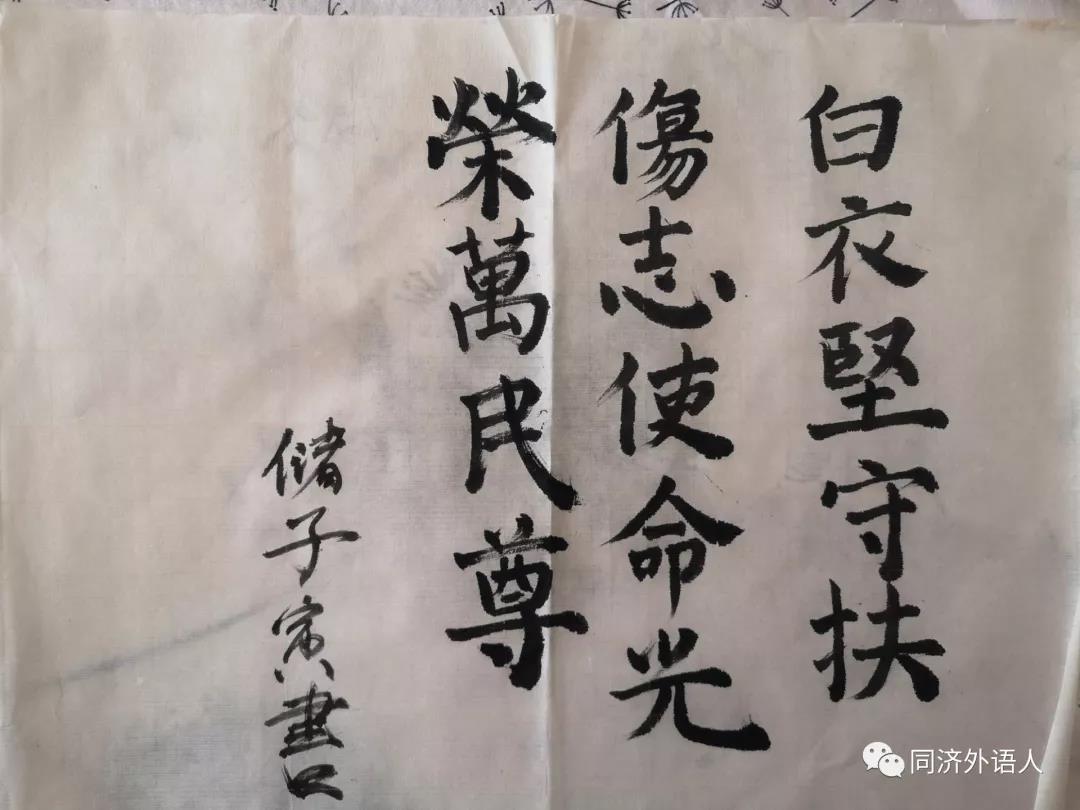 白衣堅守扶
傷志使命光
榮萬民尊
儲子寅書
同济外语人